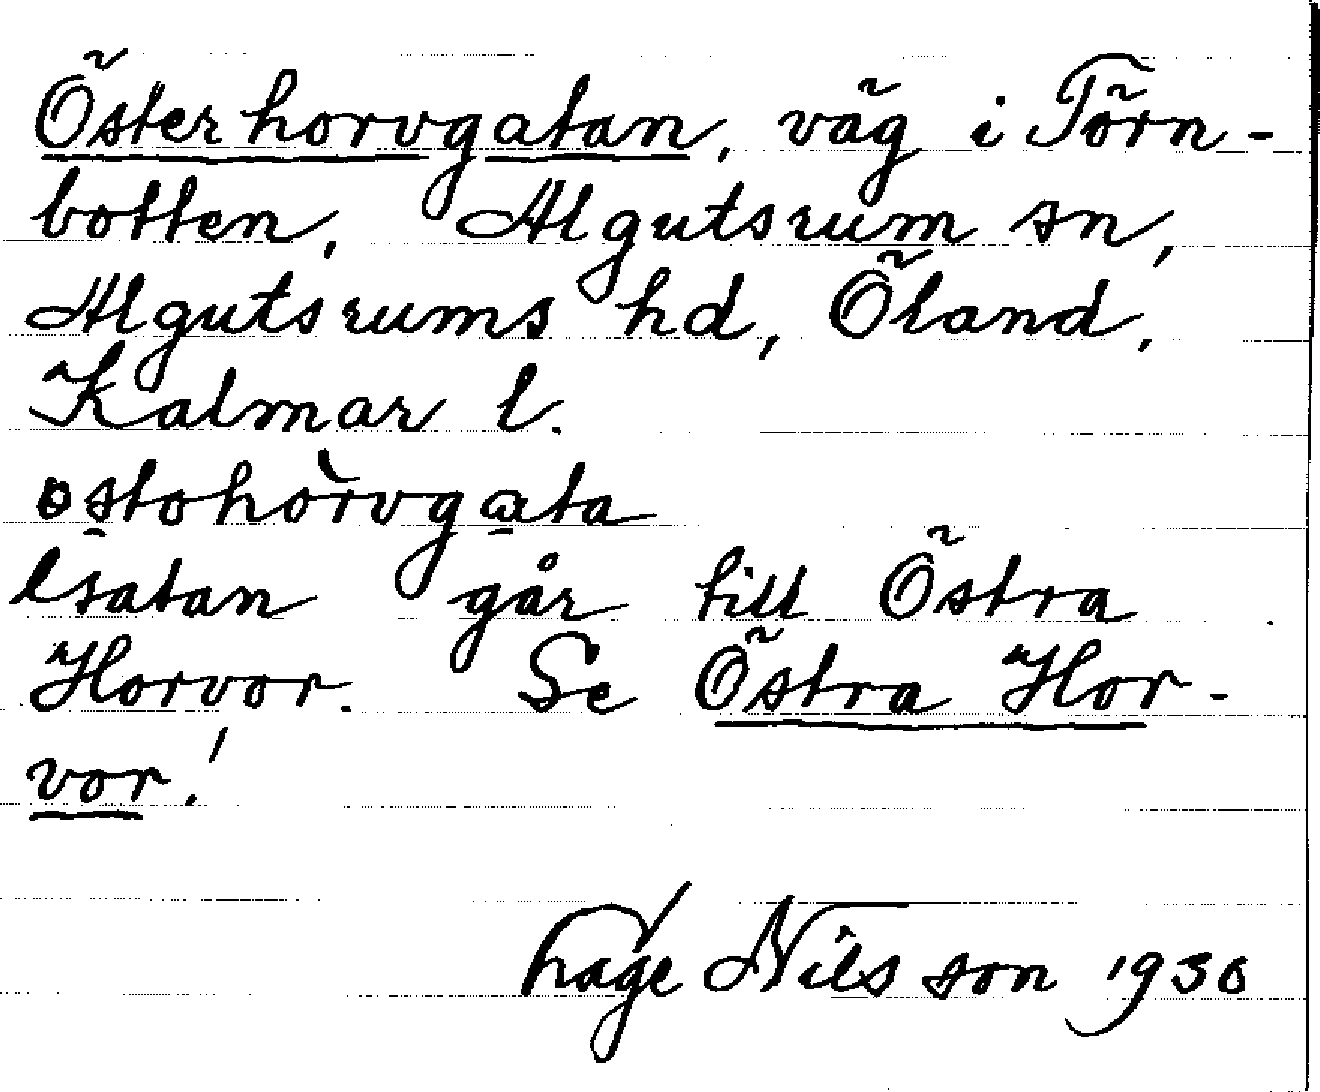 Österhorvgatan, väg i Törn-
botten, Algutsrum sn,
Algutsrums hd, Öland,
Kalmar l.
ɵstohòrvgata
Gatan går till Östra
Horvor. Se Östra Hor-
vor!
Hage Nilsson 1930